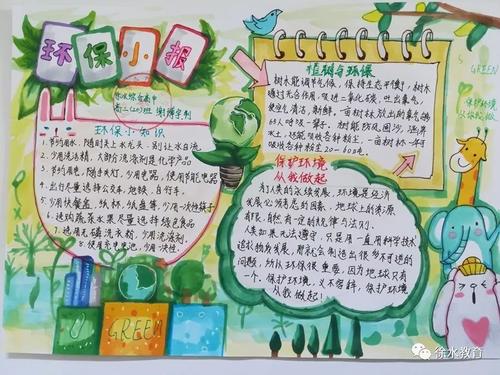 环保小报
徐水综合高中
高二(20)班 谢博宇制
环保小知识
1. 节约用水，随时关上水龙头，别让水白流
2. 少用洗洁精，大部分洗涤剂是化学产品
3. 节约用电，随手关灯，少用电器，使用节能电器
4. 出行尽量选择公交车，地铁，自行车。
5. 少用快餐盒，纸杯，纸盘等，少用一次性筷子
6. 选购蔬菜水果尽量选择绿色食品
7. 选用无磷洗衣粉，少用洗涤剂。
8. 使用充电电池，少用一次性。
GREEN
植树与环保
树木能调节气候，保持生态平衡，树木
通过光合作用，吸进二氧化碳，吐出氧气，
使空气清洁，新鲜，一亩树林放出的氧气够
65人呼吸一辈子。树能防风固沙，涵养
水土，还能吸收各种粉尘，一亩树林一年可
吸收各种粉尘20-60吨。
保护环境
从我做起
为人类的永续发展，环境是经济
发展必须考虑的因素，地球上的资源
有限，自然有一定的规律与法则。
人类如果无法遵守，只是用一直用科学技术
追求物质发展，那就会制造出很多不可逆的
问题，所以环保很重要，因为地球只有
一个。保护环境，义不容辞，保护环境
从我做起！
GREEN
保护环境
从我做起
徐水教育